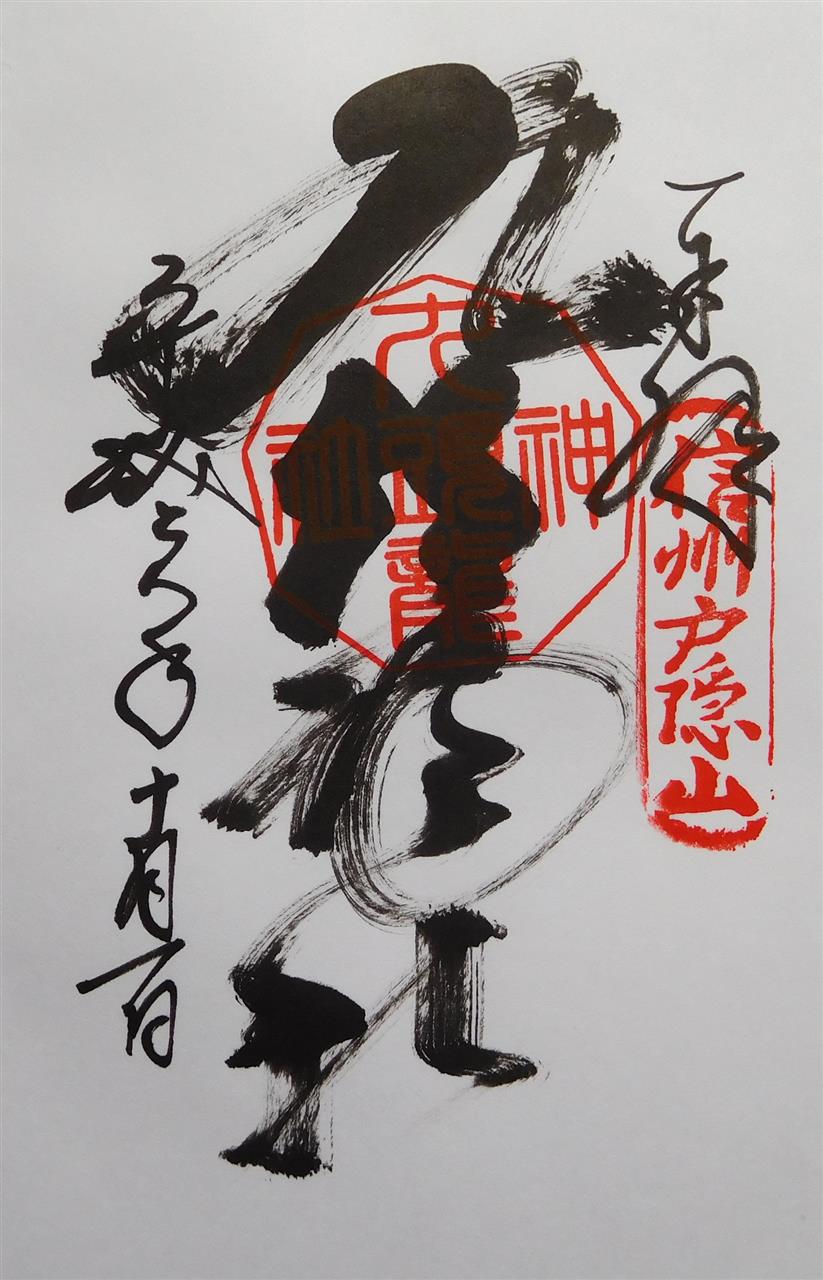 奉拝
信州戸隠山
九頭龍社
九頭龍
神
社
平成
年十月一日